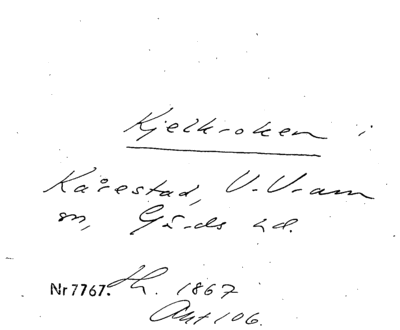 Kjelkroken i
Kårestad, V. Vram
sn, Gärds hd.
Nr 7767. th. 1867
Akt 106.